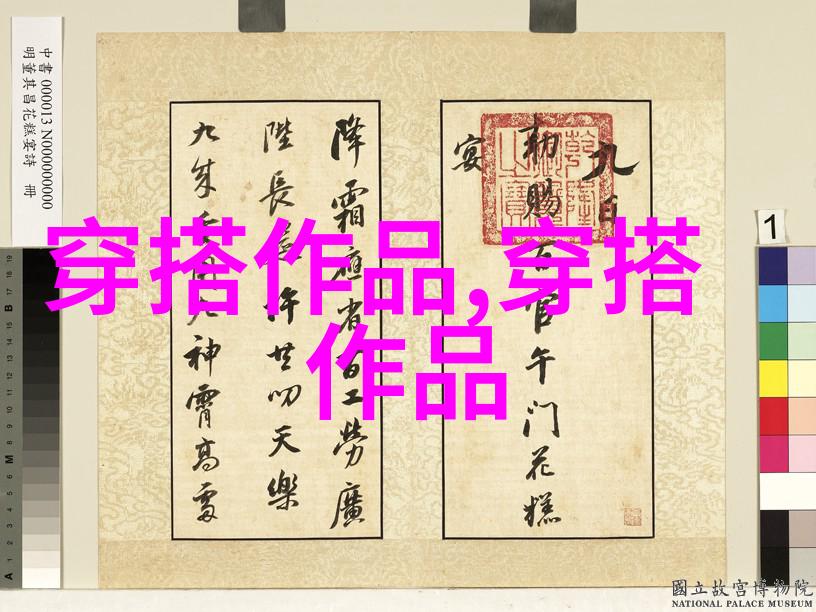 中書 000013 N000000000
明董其昌花糕宴詩 冊
穿搭作品,穿搭
作品
九日
勅賜百官午門花糕
宴
降霜應省百工勞廣
陛長筵許共叨天樂
九 神霄高
1
國立故宮博物院
NATIONAL PALACE MUSEUM